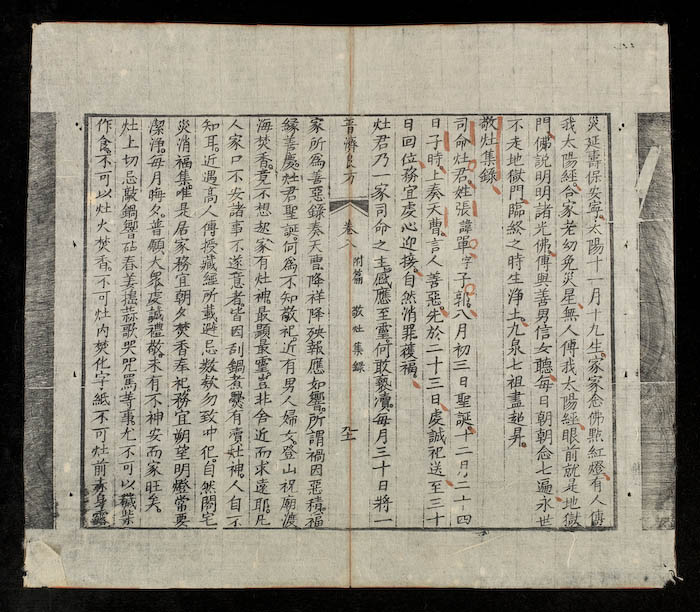 災延壽保安寧太陽十一月十九生家家念佛點紅燈有人傳
我太陽經合家老幼免災星無人傳我太陽經眼前就是地獄
門佛說明明諸光佛傳與善男信女聽每日朝朝念七遍永世
不走地獄門臨終之時生淨土九泉七祖盡超昇
敬灶集錄
司命灶君姓張諱單字子郭八月初三日聖誕十二月二十四
日子時上奏天曹言人善惡先於二十三日虔誠祀送至三十
日回位務宜虔心迎接自然消罪獲福
灶君乃一家司命之主感應至靈何敢褻瀆每月三十日將一
普濟良方 卷八 附篇 敬灶集錄
家所為善惡錄奏天曹降祥降殃報應如響所謂禍因惡積福
緣善慶灶君聖誕何為不知敬祀近有男人婦女登山祝廟渡
海焚香竟不想起家有灶神最顯最靈豈非舍近而求遠耶凡
人家口不安諸事不遂意者皆因刮鍋煮爨有瀆灶神人自不
知耳近遇高人傳授藏經所載避忌數款勿致冲犯自然闔宅
災消福集唯是居家務宜朝夕焚香奉祀務宜朔望明燈常要
潔淨每月晦夕普願大眾虔誠禮敬未有不神安而家旺矣
灶上切忌敲鍋響砧舂姜搗蒜歌哭咒罵等事尤不可以穢柴
作食不可以灶火焚香不可灶內焚化字紙不可灶前赤身露